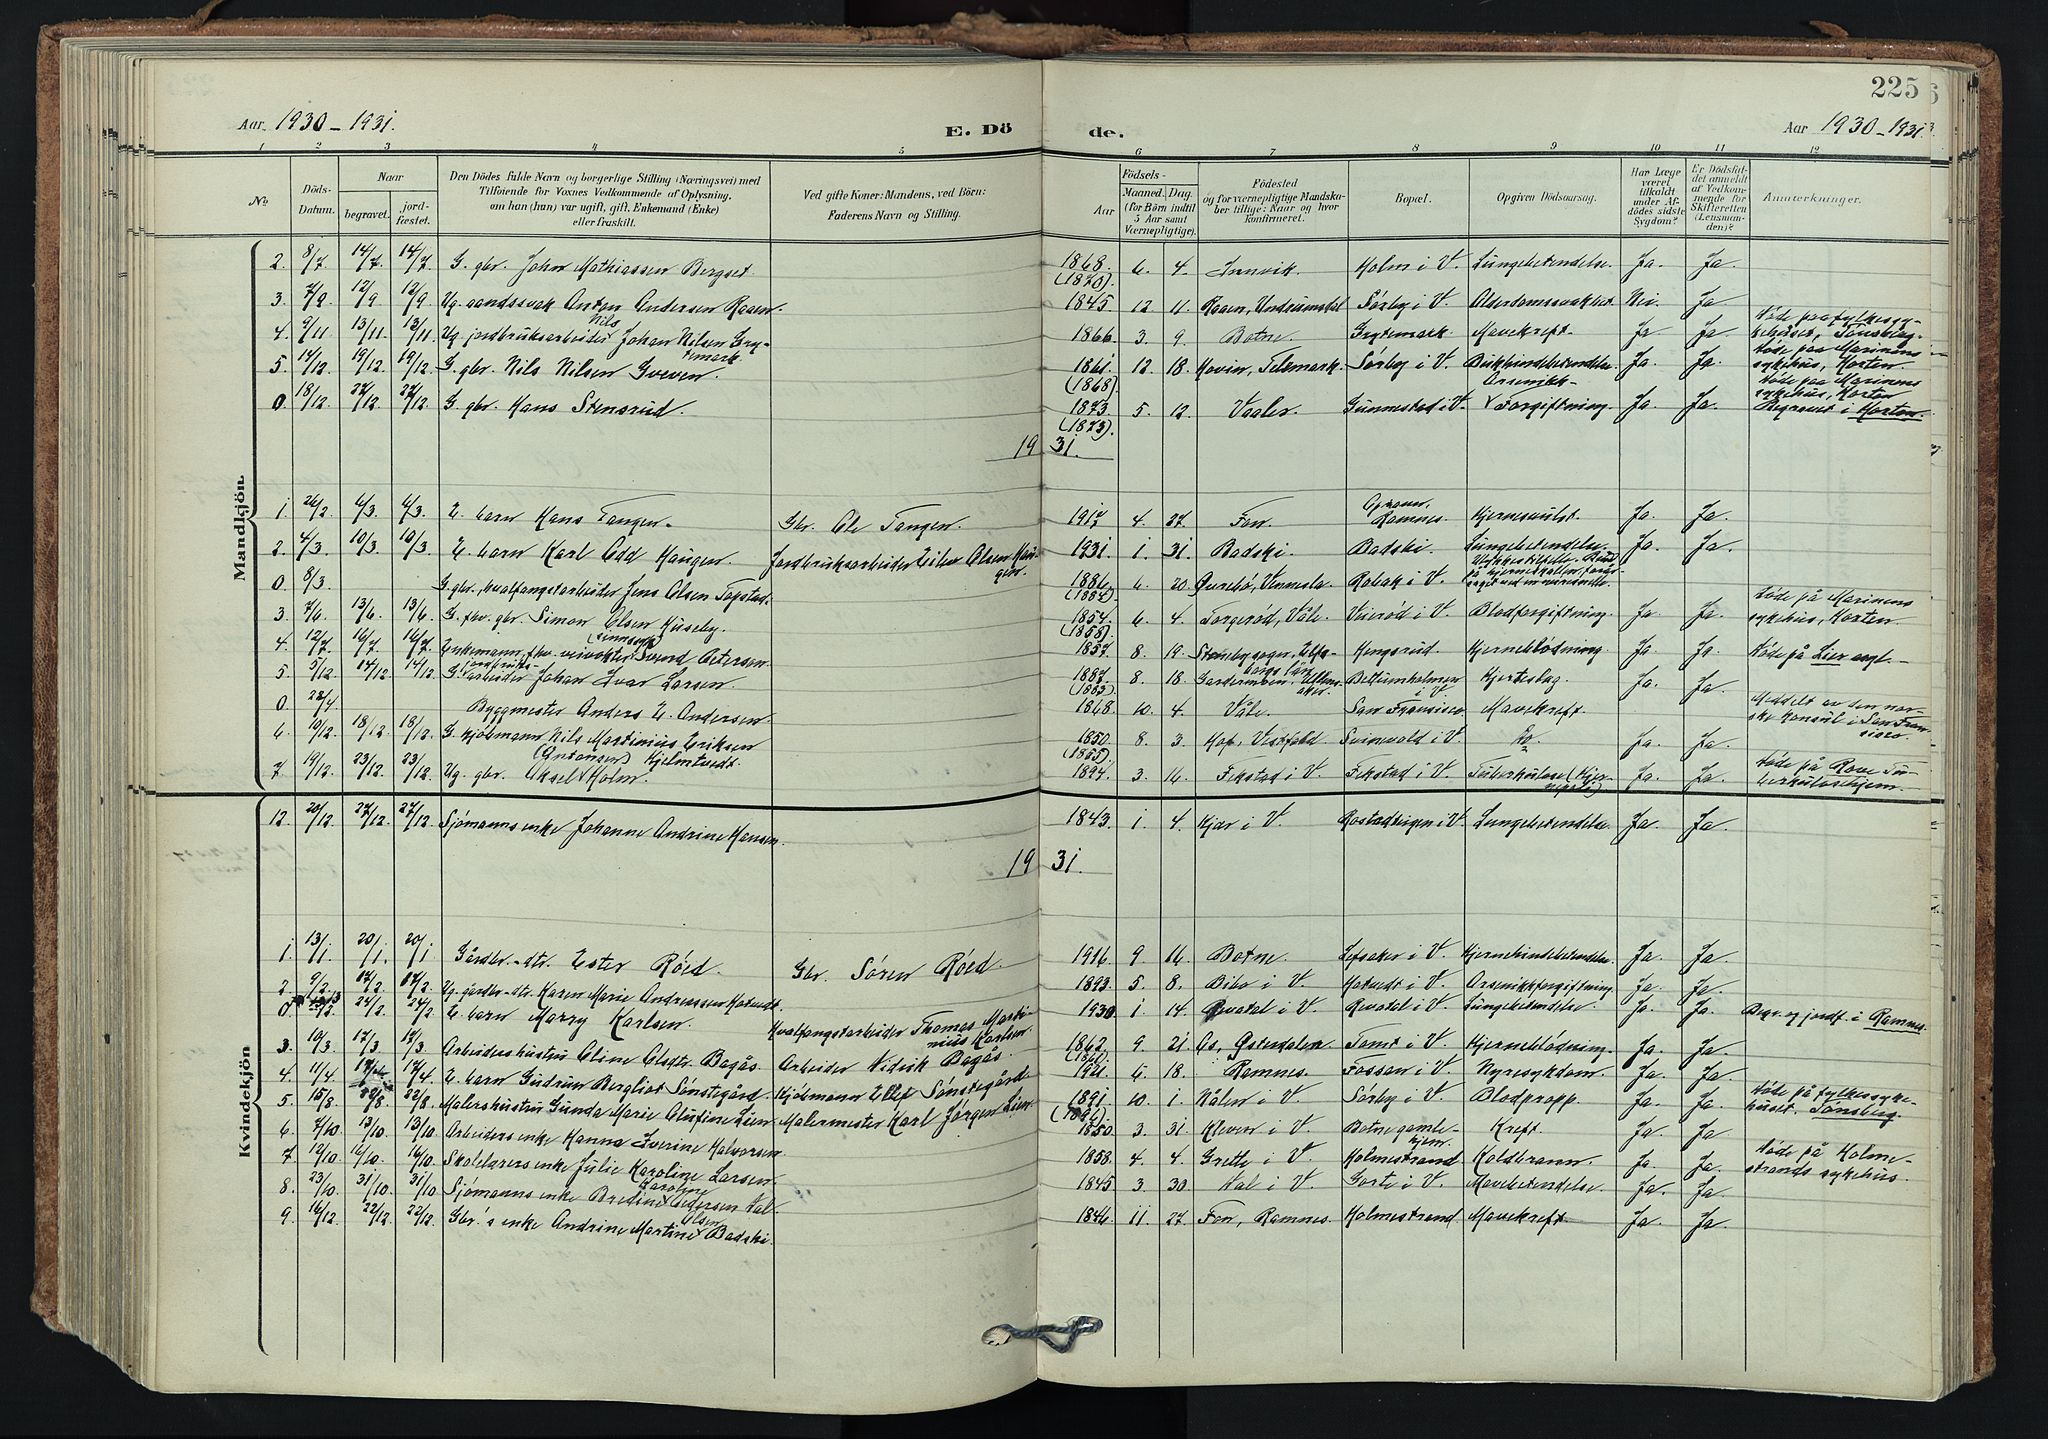 225
Aar 1930-1931.
E. Döde.
Aar 1930-1931.
1 2 3 4 5 6 7 8 9 10 11 12
No.
Döds-Datum.
Naar
begravet.
jord-fæstet.
Den Dödes fulde Navn og borgerlige Stilling (Næringsvei) med
Tilföiende for Voxnes Vedkommende af Oplysning,
om han (hun) var ugift, gift, Enkemand (Enke)
eller fraskilt.
Ved gifte Koner: Mandens, ved Börn:
Faderens Navn og Stilling.
Födsels-
Aar
Maaned. Dag.
(for Börn indtil
5 Aar samt
Værnepligtige).
Födested
og for værnepligtige Mandska-
ber tillige: Naar og hvor
konfirmeret.
Bopæl.
Opgiven Dödsaarsag.
Har Læge
været
tilkaldt
under Af-
dödes sidste
Sygdom?
Er Dödsfal-
det anmeldt
af Vedkom-
mende for
Skifteretten
(Lensman-
den)?
Anmærkninger.
Mandkjön.
2. 8/7 14/7 14/7 G. gbr. Johan Mathiassen Bergset 1868. (1870). 6. 4. Innvik. Holm i V. Lungebetendelse. Ja. Ja.
3. 7/9 12/9 12/9 Ug. aandssvak Anton Andersen Raaen. 1845. 12 11. Raaen, Undrumsdal Sörby i V. Alderdomssvakhet. Nei. Ja
4. 9/11 13/11 13/11 Ug. jordbruksarbeider Nils Johan Nilsen Gry-temark 1866. 3. 9. Botne. Grytemark. Mavekreft. Ja Ja. Döde paa fylkessy-kehuset, Tönsberg.
5. 14/12 19/12 19/12 G. gbr. Nils Nilsen Sveven. 1861 (1868) 12. 18. Hovin, Telemark. Sörby i V. Bukhindebetendelse. Ja. Ja. Döde paa Marinens sykehus, Horten.
0. 18/12 27/12 27/12 G gbr. Hans Stensrud 1873 (1873). 5. 12. Vaaler. Gunnestad i V. Arsenikk-Forgiftning. Ja. Ja. Döde paa Marinens sykehus, Horten Begravet i Horten.
1931.
1. 26/2 6/3. 6/3. E. barn Hans Tangen. Gbr. Ole Tangen. 1917 4. 27. Fon. Ramnes. Hjernesvulst. Ja. Ja.
2. 4/3 10/3. 10/3 E. barn Karl Odd Haugen. Jordbruksarbeider Eilev Olsen Hau-gen. 1931. 1. 31. Badski. Badski. Lungebetendelse. Ja. Ja.
0. 8/3. G. gbr., hvalfangstarbeider Jens Olsen Fogstad. 1886 (1884) 6. 20. Övrebö, Vennesla. Robak i V. Ulykkestilfelle.
3. 7/6 13/6 13/6 G. fhv. gbr. Simon Olsen Huseby. 1854 (1858) 6. 4. Torgeröd, Våle. Vueröd i V. Blodforgiftning. Ja. Ja. Döde på Marinens sykehus, Horten.
4. 12/7 16/7 16/7 Enkemann, fhv. veivokter Svend Petersen. 1857. 8. 19. Steneby sogn, Elfs-borgs län. Hengsrud. Hjerneblödning. Ja. Ja. Döde på Lier asyl.
5. 5/12 14/12 14/12 G. jordbruks-arbeider Johan Ivar Larsen. 1887. (1883) 8. 18. Gardermoen, Ullens-aker. i V. Hjerteslag. Ja. Ja.
0. 28/4. Byggmester Anders E. Andersen. 1868. 10. 4. Våle. San Francisco Mavekreft. Meddelt av den nor-ske konsul i San Fran-sisco.
6. 10/12 18/12 18/12 G. kjöbmann Nils Martinius Eriksen Hjelmtvedt. 1850 (1855). 8. 3. Hof, Vestfold. Svinevold i V. Do Ja. Ja.
7. 19/12 23/12 23/12 Ug. gbr. Aksel (Antonsen) Holm. 1894. 3. 16. Fekstad i V. Fekstad i V. Tuberkulose (Hjer- Ja. Ja. Döde på Rove Tu-berkulosehjem.
Kvindekjön
12. 20/12 27/12. 27/12. Sjömanns enke Johanne Andrine Hansen. 1843. 1. 4. Kjær i V. i V. Lungebetendelse. Ja. Ja.
1931.
1. 13/1 20/1 20/1 Gårdbr.-dtr. Ester Röed. Gbr. Sören Röed. 1916 9. 16. Botne. Lefsaker i V. Hjernehindebetendelse. Ja. Ja.
2. 9/2 17/2. 17/2. Ug. gårdbr-dtr. Karen Marie Andreassen Hotvedt. 1893. 5. 8. Bibo i V. Hotvedt i V. Arsenikkforgiftning. Ja. Ja.
0. 24/2. 24/2 E. barn Marry Karlsen. Hvalfangstarbeider Thomas Marti-nius Karlsen. 1930 1. 14. Revatal i V. Revatal i V. Lungebetendelse. Ja. Ja. Begr. og jordf. i Ramnes.
3. 10/3 17/3 17/3 Arbeiderhustru Oline Olsdtr. Bagås. Arbeider Nidisk Bagås. 1862 (1860) 9. 21. Os, Österdalen. Tomt i V. Hjerneblödning. Ja. Ja.
4. 11/4 17/4 17/4 E. barn Gudrun Bergliot Sönstegård. Kjöbmann Ellef Sönstegård. 1921. 6. 18. Ramnes. Fossan i V. Nyresykdom. Ja. Ja.
5. 15/8. 22/8. 22/8 Malerhustru Gunda Marie Olufine Lien. Malermester Karl Jörgen Lien. 1891. (1896) 10. 1. Nålen i V. Sörby i V. Blodpropp. Ja. Ja. Döde på fylkessyke-huset, Tönsberg
6. 7/10 13/10 13/10 Arbeiders enke Hanna Iverine Halvorsen. 1850. 3. 31. Kleven i V. Botne gamle-hjem. Kreft. Ja. Ja.
7. 12/10 16/10 16/10 Skolelærers enke Julie Karoline Larsen. 1858. 4. 4. Grette i V. Holmestrand Koldbrann. Ja. Ja. Döde på Holme-strands sykehus.
8. 23/10 31/10 31/10 Sjömanns enke Bredine Karoline Pedersen Hal. 1845. 3. 30. Hal i V. Gorte i V. Mavebetendelse. Ja. Ja.
9. 16/12. 22/12. 22/12. Gbr's enke Andrine Martine Olsen Badski. 1846. 11. 27. Fon, Ramnes. Holmestrand. Mavekreft. Ja. Ja.